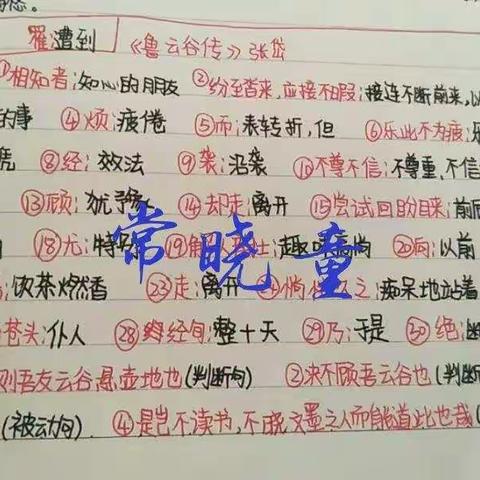 您。
罹遭到 《鲁云谷传》张岱
①相知者:知心的朋友 ②纷至沓来,应接不暇:接连不断前来,以
的事 ④烦:疲倦 ⑤而:表转折,但 ⑥乐此不为疲:乐
⑧经:效法 ⑨袭:沿袭 ⑩不尊不信:不尊重,不信
⑬顾:犹豫 ⑭却走:离开 ⑮尝试回的目来:前
⑱尤:特殊 ⑲解 趣味高尚 ⑳向:以前
饮茶燃香 ㉓走:离开 之:痴呆地站着
苍头:仆人 ㉘ 经旬:整十天 ㉙乃:于是 ㉚绝:
则吾友云谷悬壶地也(判断句) ②决不顾吾云谷也(判断
(被动句) ④是岂不读书,不晓文墨之人而能道此也哉
常晓童